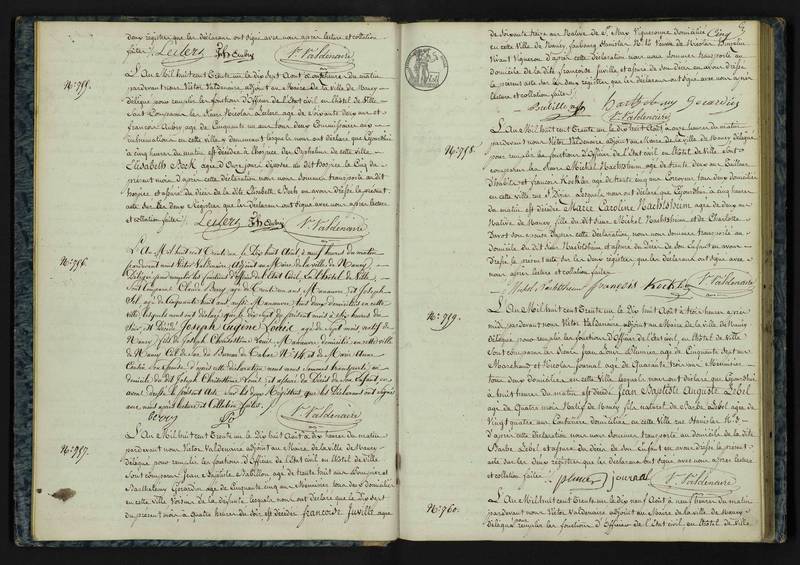 deux registre que les déclarans ont signé avec nous après lecture et collation
faites. Leclerc Aubry Vr Valdenaire
No 755. L'An Mil huit cent Trente un le dix sept Août à onze heures du matin
pardevant nous Victor Valdenaire adjoint au Maire de la Ville de Nancy
délégué pour remplir les fonctions d'Officier de l'état civil en l'hôtel de Ville
Sont Comparus les Sieurs Nicolas Leclerc agé de Soixante deux ans et
François Aubry agé de Cinquante un ans tous deux Commissaires aux
inhumations en cette ville y demeurant lesquels nous ont déclaré que
à cinq heures du matin est décédée à l'hospice des Orphelins de cette ville
Elisabeth Beck agée d'Onze jours au dit hospice le Cinq du
présent mois d'après cette déclaration nous nous sommes transporté au dit
hospice et assuré du décès de la dite Elisabeth Beck en avons dressé le présent
acte sur les deux Registres que les déclarans ont signé avec nous après lecture
et collation faites. Leclerc Aubry Vr Valdenaire
No 756. L'An Mil huit cent Trente un le Dix huit Août à neuf heures du matin
pardevant nous Victor Valdenaire Adjoint au Maire de la ville de Nancy
délégué pour remplir les fonctions d'Officier de l'Etat Civil, en l'hôtel de Ville
Sont Comparus Claude agé de Trente un ans Manœuvre et Joseph
agé de Cinquante huit ans aussi Manœuvre tous deux domiciliés en cette
ville lesquels nous ont déclaré que le dix sept du présent mois à dix heures du
soir, est Décédé Joseph Eugène Louis agé de Sept mois natif de
Nancy fils de Joseph Louis Manœuvre domicilié en cette ville
de Nancy No 14 et de Marie Anne
Son Epouse d'après cette déclaration nous nous sommes transporté au
domicile du dit Joseph Louis et assuré du Décès de son Enfant en
avons dressé le présent Acte Sur les deux Registres que les Déclarans ont signé
avec nous après lecture et Collation faites.
Vr Valdenaire
No 757. L'An Mil huit cent Trente un le Dix huit Août à dix heures du matin
pardevant nous Victor Valdenaire adjoint au Maire de la Ville de Nancy
délégué pour remplir les fonctions d'Officier de l'Etat civil en l'hôtel de Ville
Sont comparus Jean Baptiste agé de trente huit ans et
Barthelemy Gerardin agé de Cinquante cinq ans Menuisier tous deux domiciliés
en cette ville Voisins de la défunte lesquels nous ont déclaré que le Dix sept
du présent mois à quatre heures du soir est décédée françoise Juville agée
de Soixante Seize ans Native de St Max Vigneronne domiciliée
en cette ville de Nancy, faubourg Stanislas No 16 Veuve de Nicolas
Vivant Vigneron d'après cette déclaration nous nous sommes transporté au
domicile de la dite françoise Juville et assuré de son décès en avons dressé
le présent acte sur les deux registres que les déclarans ont signé avec nous après
lecture et collation faites.
Barthelemy Gerardin
Vr Valdenaire
No 758. L'An Mil huit cent Trente un le Dix huit Août à onze heures du matin
pardevant nous Victor Valdenaire adjoint au Maire de la Ville de Nancy délégué
pour remplir les fonctions d'Officier de l'Etat civil en l'hôtel de Ville Sont
comparus les Sieurs Michel Nachtsheim agé de trente deux ans Tailleur
d'habits et françois Kecklen agé de trente cinq ans Corroyeur tous deux domiciliés
en cette ville lesquels nous ont déclaré que à cinq heures
du matin est décédée Marie Caroline Nachtsheim agée de deux ans
Native de Nancy fille du dit Sieur Michel Nachtsheim et de Charlotte
son épouse D'après cette déclaration nous nous sommes transporté au
domicile du dit Sieur Nachtsheim et assuré du Décès de son Enfant en avons
dressé le présent acte sur les deux registres que les déclarans ont signé avec
nous après lecture et collation faites.
Michel Nachtsheim françois Vr Valdenaire
No 759. L'An Mil huit cent Trente un le Dix huit Août à trois heures après
midi pardevant nous Victor Valdenaire adjoint au Maire de la Ville de Nancy
délégué pour remplir les fonctions d'Officier de l'Etat civil, en l'hôtel de Ville
Sont comparus les Sieurs Jean agé de Cinquante Sept ans
Marchand et Nicolas Journal agé de Quarante trois ans Menuisier
tous deux domiciliés en cette Ville lesquels nous ont déclaré que
à huit heures du matin est décédé Jean Baptiste Auguste Lebel
agé de Quatre mois Natif de Nancy fils naturel de Barbe Lebel agée de
Vingt quatre ans Couturière domiciliée en cette Ville rue Stanislas
d'après cette déclaration nous nous sommes transporté au domicile de la dite
Barbe Lebel et assuré du décès de son Enfant en avons dressé le présent
acte sur les deux registres que les déclarans ont signé avec nous après lecture
et collation faites. Vr Valdenaire
No 760. L'An Mil huit cent Trente un le Dix neuf Août à neuf heures du matin
pardevant nous Victor Valdenaire adjoint au Maire de la Ville de Nancy
délégué pour remplir les fonctions d'Officier de l'état civil, en l'hôtel de Ville